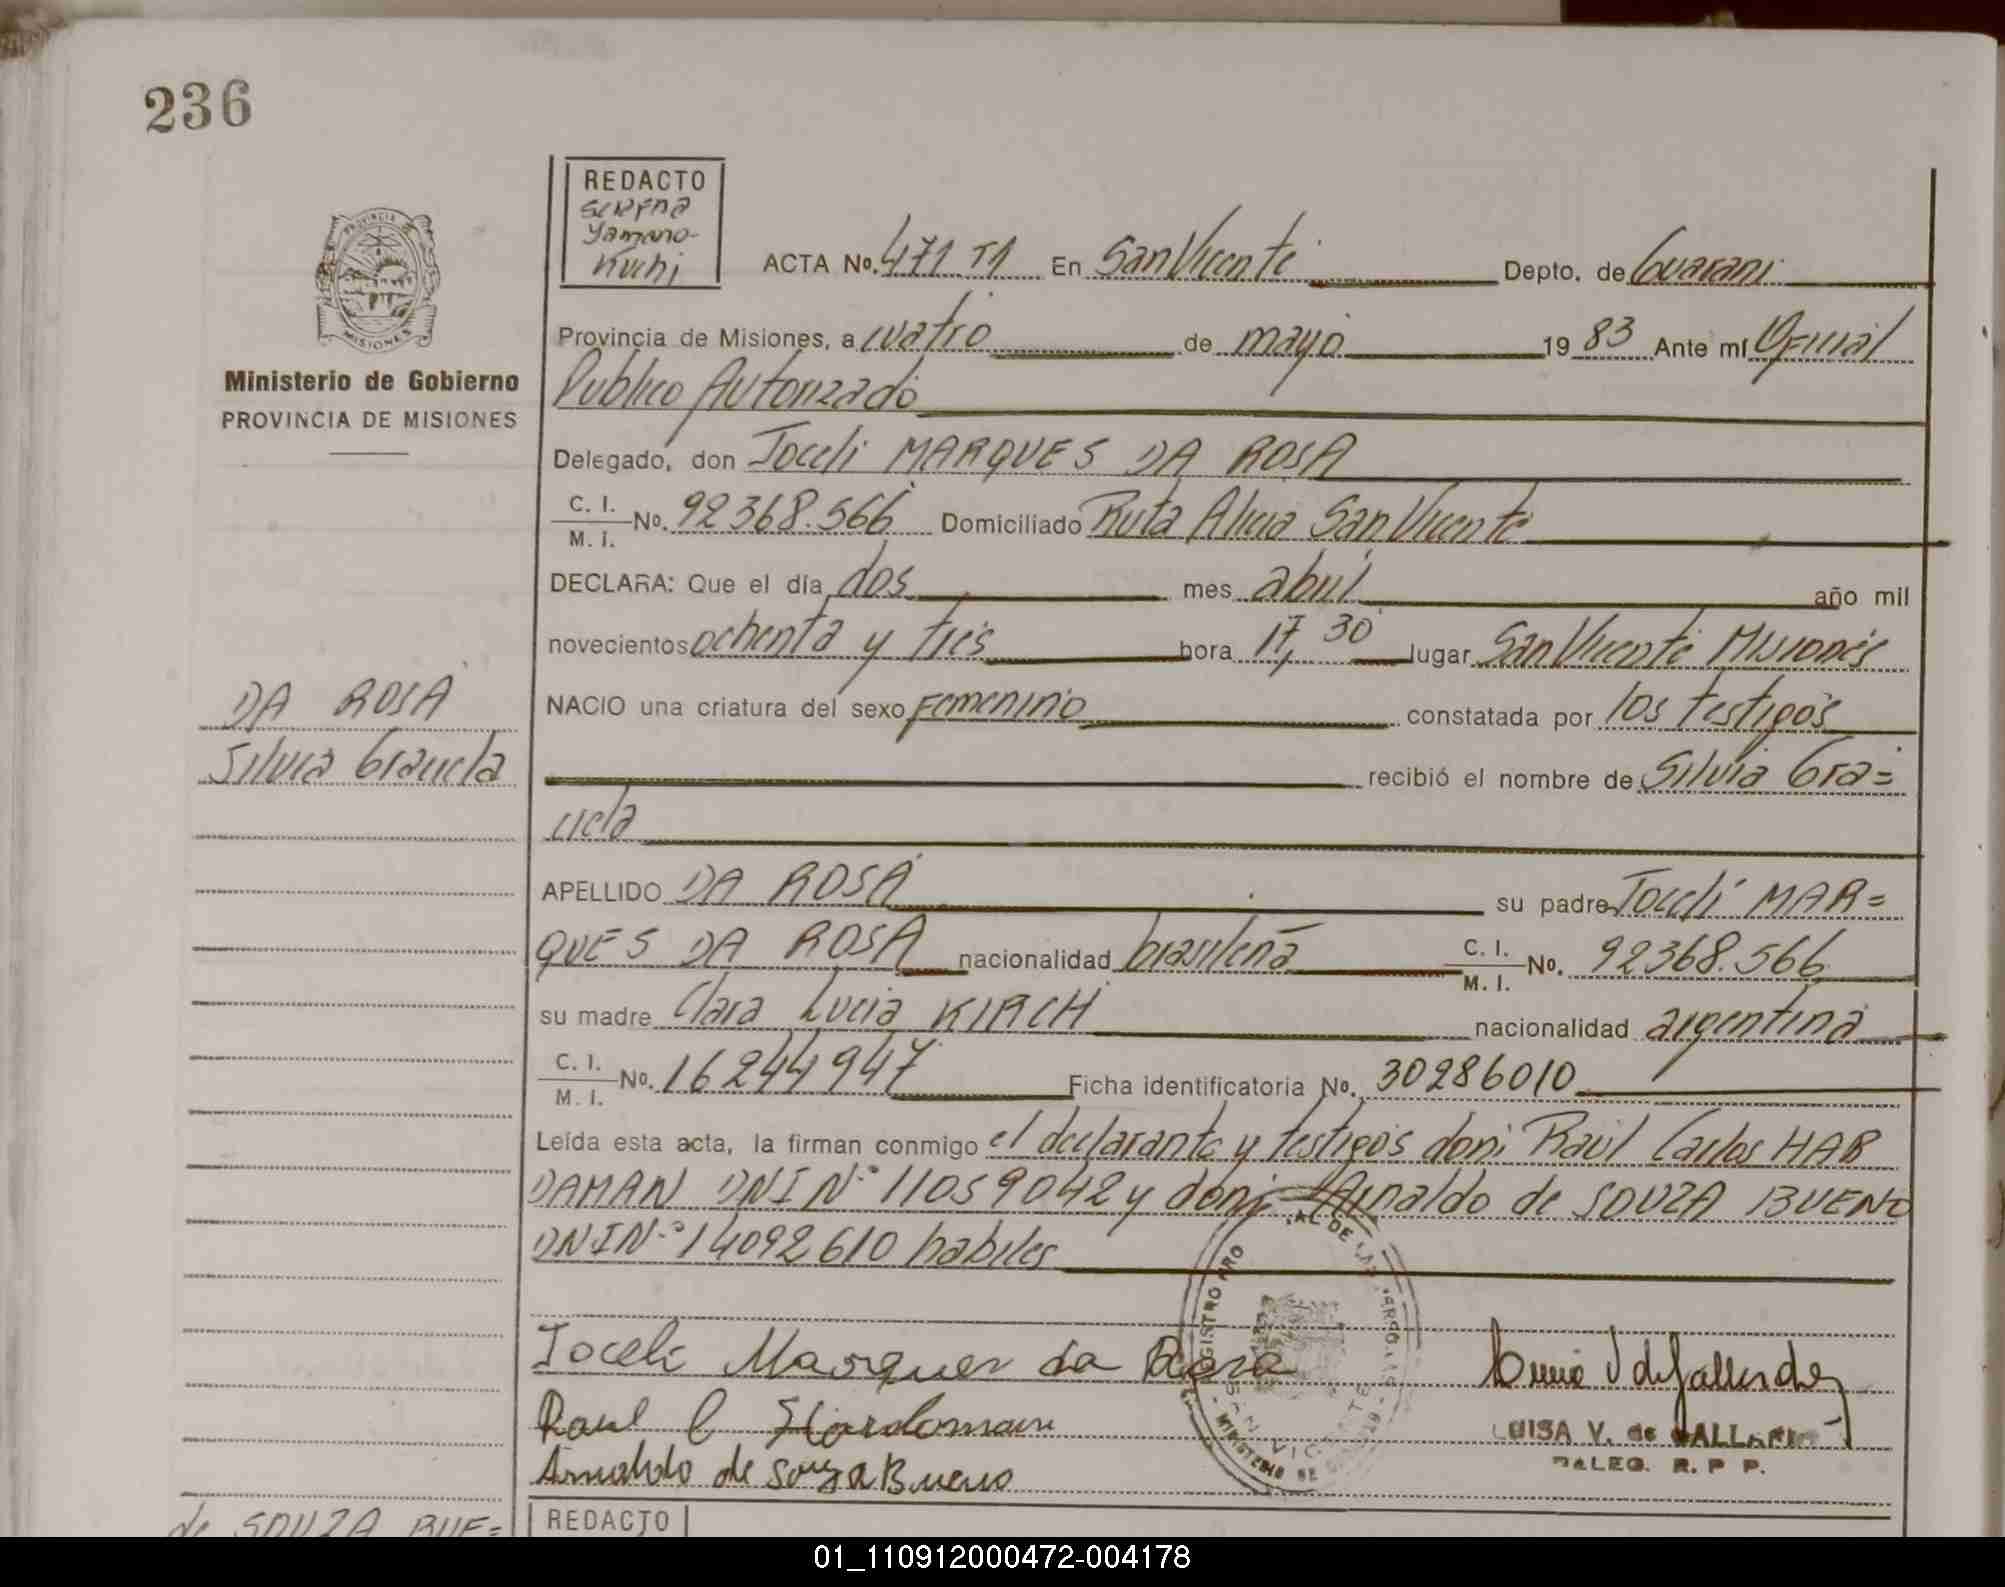 236
REDACTO
SERENA
Yamano-
Kuchi
PROVINCIA
MISIONES
Ministerio de Gobierno
PROVINCIA DE MISIONES
ACTA No. 471 T1 En San Vicente Depto. de Guarani
Provincia de Misiones, a cuatro de mayo 1983 Ante mí Oficial
Publico Autorizado
Delegado, don Joceli MARQUES DA ROSA
C. I. / M. I. No. 92368.566 Domiciliado Ruta Alicia San Vicente
DECLARA: Que el día dos mes abril año mil
novecientos ochenta y tres hora 17,30 lugar San Vicente Misiones
NACIO una criatura del sexo Femenino constatada por los testigos
DA ROSA
Silvia Graciela
recibió el nombre de Silvia Gra=
ciela
APELLIDO DA ROSA su padre Joceli MAR=
QUES DA ROSA nacionalidad brasileña C. I. / M. I. No. 92368.566
su madre Clara Lucia KIRCH nacionalidad argentina
C. I. / M. I. No. 16244947 Ficha identificatoria No. 30286010
Leída esta acta, la firman conmigo el declarante y testigos don: Raúl Carlos HAR
DAMAN DNI N° 11059042 y don: Arnaldo de SOUZA BUENO
DNI N° 14092610 habiles
Joceli Marques da Rosa
Raul C Hardoman
Arnaldo de Souza Bueno
SAN VICENTE
LUISA V. de
DELEG. R. P P.
de SOUZA BUE=
REDACTO
01_110912000472-004178